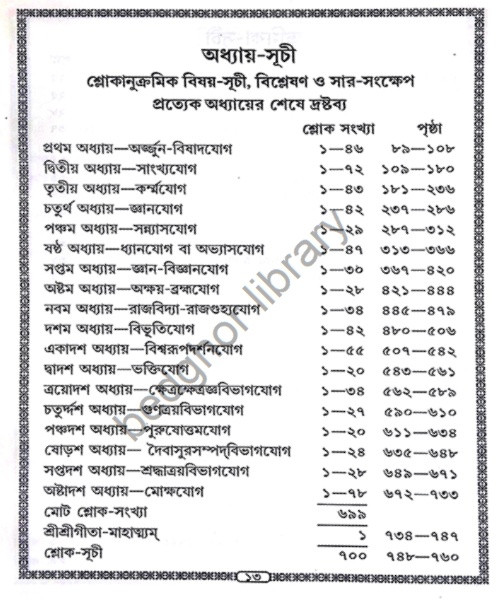 অধ্যায়-সূচী
শ্লোকানুক্রমিক বিষয়-সূচী, বিশ্লেষণ ও সার-সংক্ষেপ
প্রত্যেক অধ্যায়ের শেষে দ্রষ্টব্য
শ্লোক সংখ্যা পৃষ্ঠা
প্রথম অধ্যায়—অর্জ্জুন-বিষাদযোগ ১—৪৬ ৮৯—১০৮
দ্বিতীয় অধ্যায়—সাংখ্যযোগ ১—৭২ ১০৯—১৮০
তৃতীয় অধ্যায়—কর্ম্মযোগ ১—৪৩ ১৮১—২৩৬
চতুর্থ অধ্যায়—জ্ঞানযোগ ১—৪২ ২৩৭—২৮৬
পঞ্চম অধ্যায়—সন্ন্যাসযোগ ১—২৯ ২৮৭—৩১২
ষষ্ঠ অধ্যায়—ধ্যানযোগ বা অভ্যাসযোগ ১—৪৭ ৩১৩—৩৬৬
সপ্তম অধ্যায়—জ্ঞান-বিজ্ঞানযোগ ১—৩০ ৩৬৭—৪২০
অষ্টম অধ্যায়—অক্ষয়-ব্রহ্মযোগ ১—২৮ ৪২১—৪৪৪
নবম অধ্যায়—রাজবিদ্যা-রাজগুহ্যযোগ ১—৩৪ ৪৪৫—৪৭৯
দশম অধ্যায়—বিভূতিযোগ ১—৪২ ৪৮০—৫০৬
একাদশ অধ্যায়—বিশ্বরূপদর্শনযোগ ১—৫৫ ৫০৭—৫৪২
দ্বাদশ অধ্যায়—ভক্তিযোগ ১—২০ ৫৪৩—৫৬১
ত্রয়োদশ অধ্যায়—ক্ষেত্রক্ষেত্রজ্ঞবিভাগযোগ ১—৩৪ ৫৬২—৫৮৯
চতুর্দ্দশ অধ্যায়—গুণত্রয়বিভাগযোগ ১—২৭ ৫৯০—৬১০
পঞ্চদশ অধ্যায়—পুরুষোত্তমযোগ ১—২০ ৬১১—৬৩৪
ষোড়শ অধ্যায়— দৈবাসুরসম্পদ্‌বিভাগযোগ ১—২৪ ৬৩৫—৬৪৮
সপ্তদশ অধ্যায়—শ্রদ্ধাত্রয়বিভাগযোগ ১—২৮ ৬৪৯—৬৭১
অষ্টাদশ অধ্যায়—মোক্ষযোগ ১—৭৮ ৬৭২—৭৩৩
মোট শ্লোক-সংখ্যা ৬৯৯
শ্রীশ্রীগীতা-মাহাত্ম্যম্ ১ ৭৩৪—৭৪৭
শ্লোক-সূচী ৭০০ ৭৪৮—৭৬০
১৩
boighor library